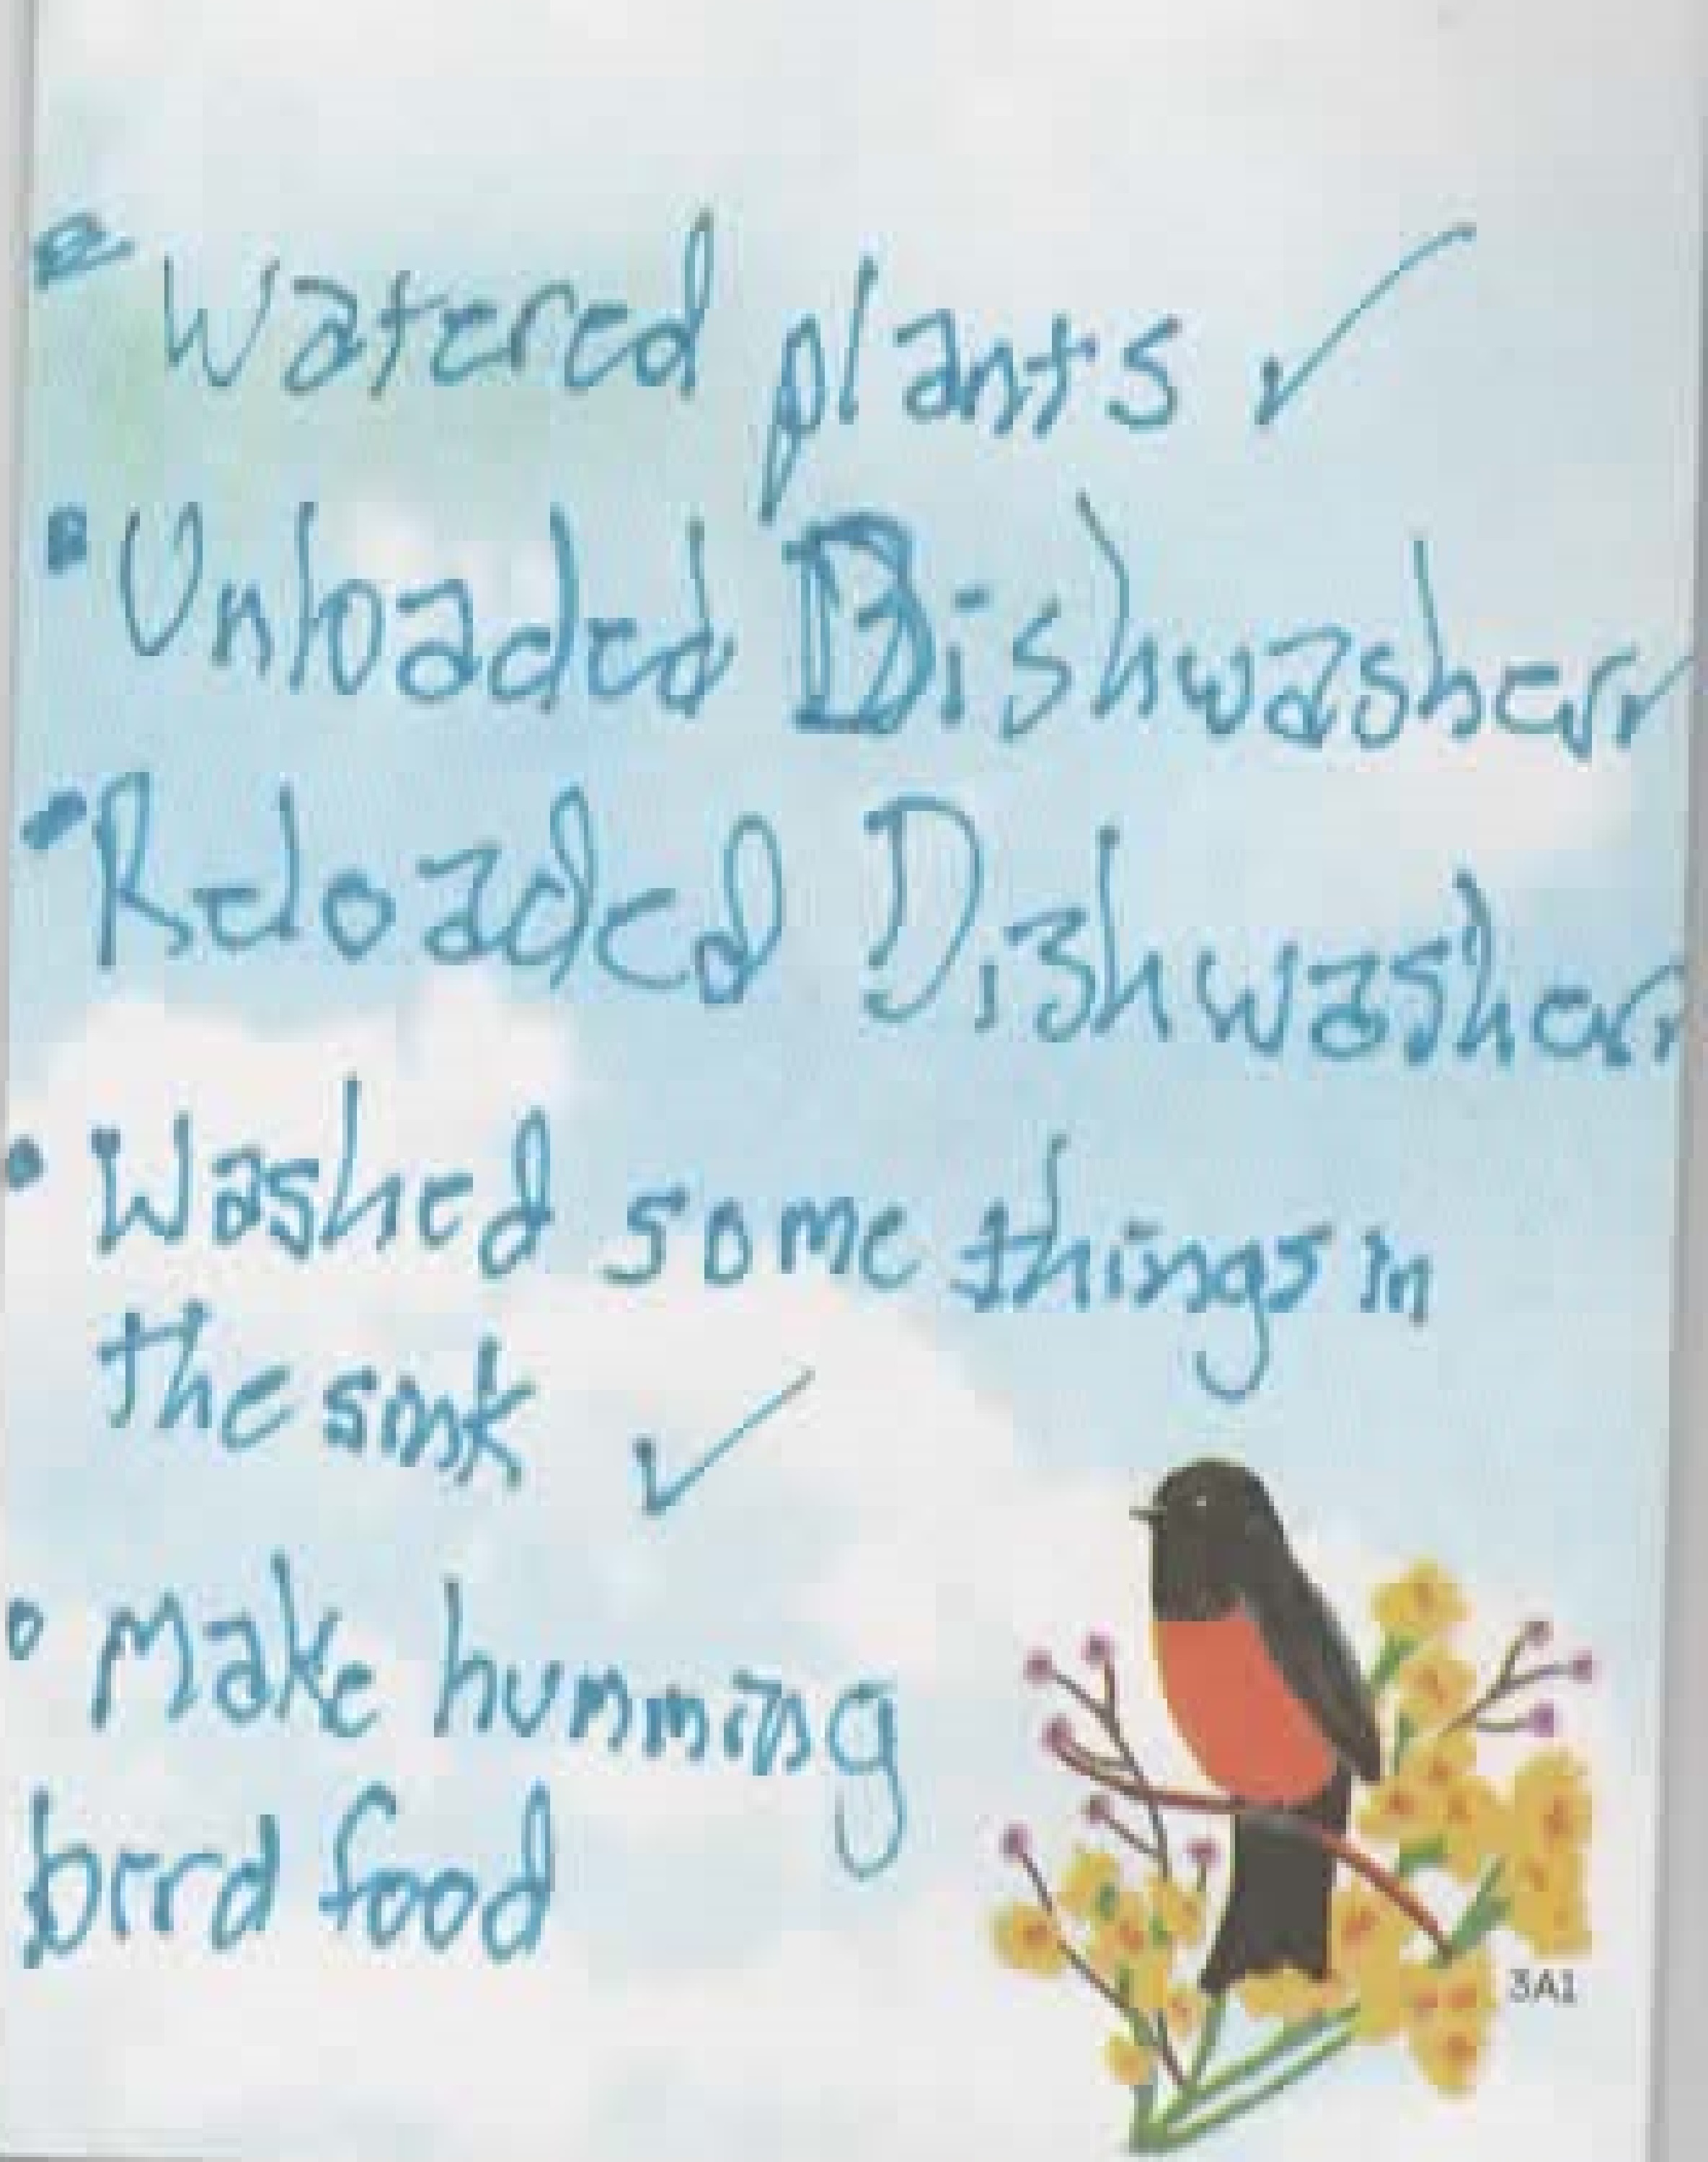 • Watered plants ✓
• Unloaded Dishwasher ✓
• Reloaded Dishwasher ✓
• Washed some things in
the sink ✓
• Make humming
bird food
3A1